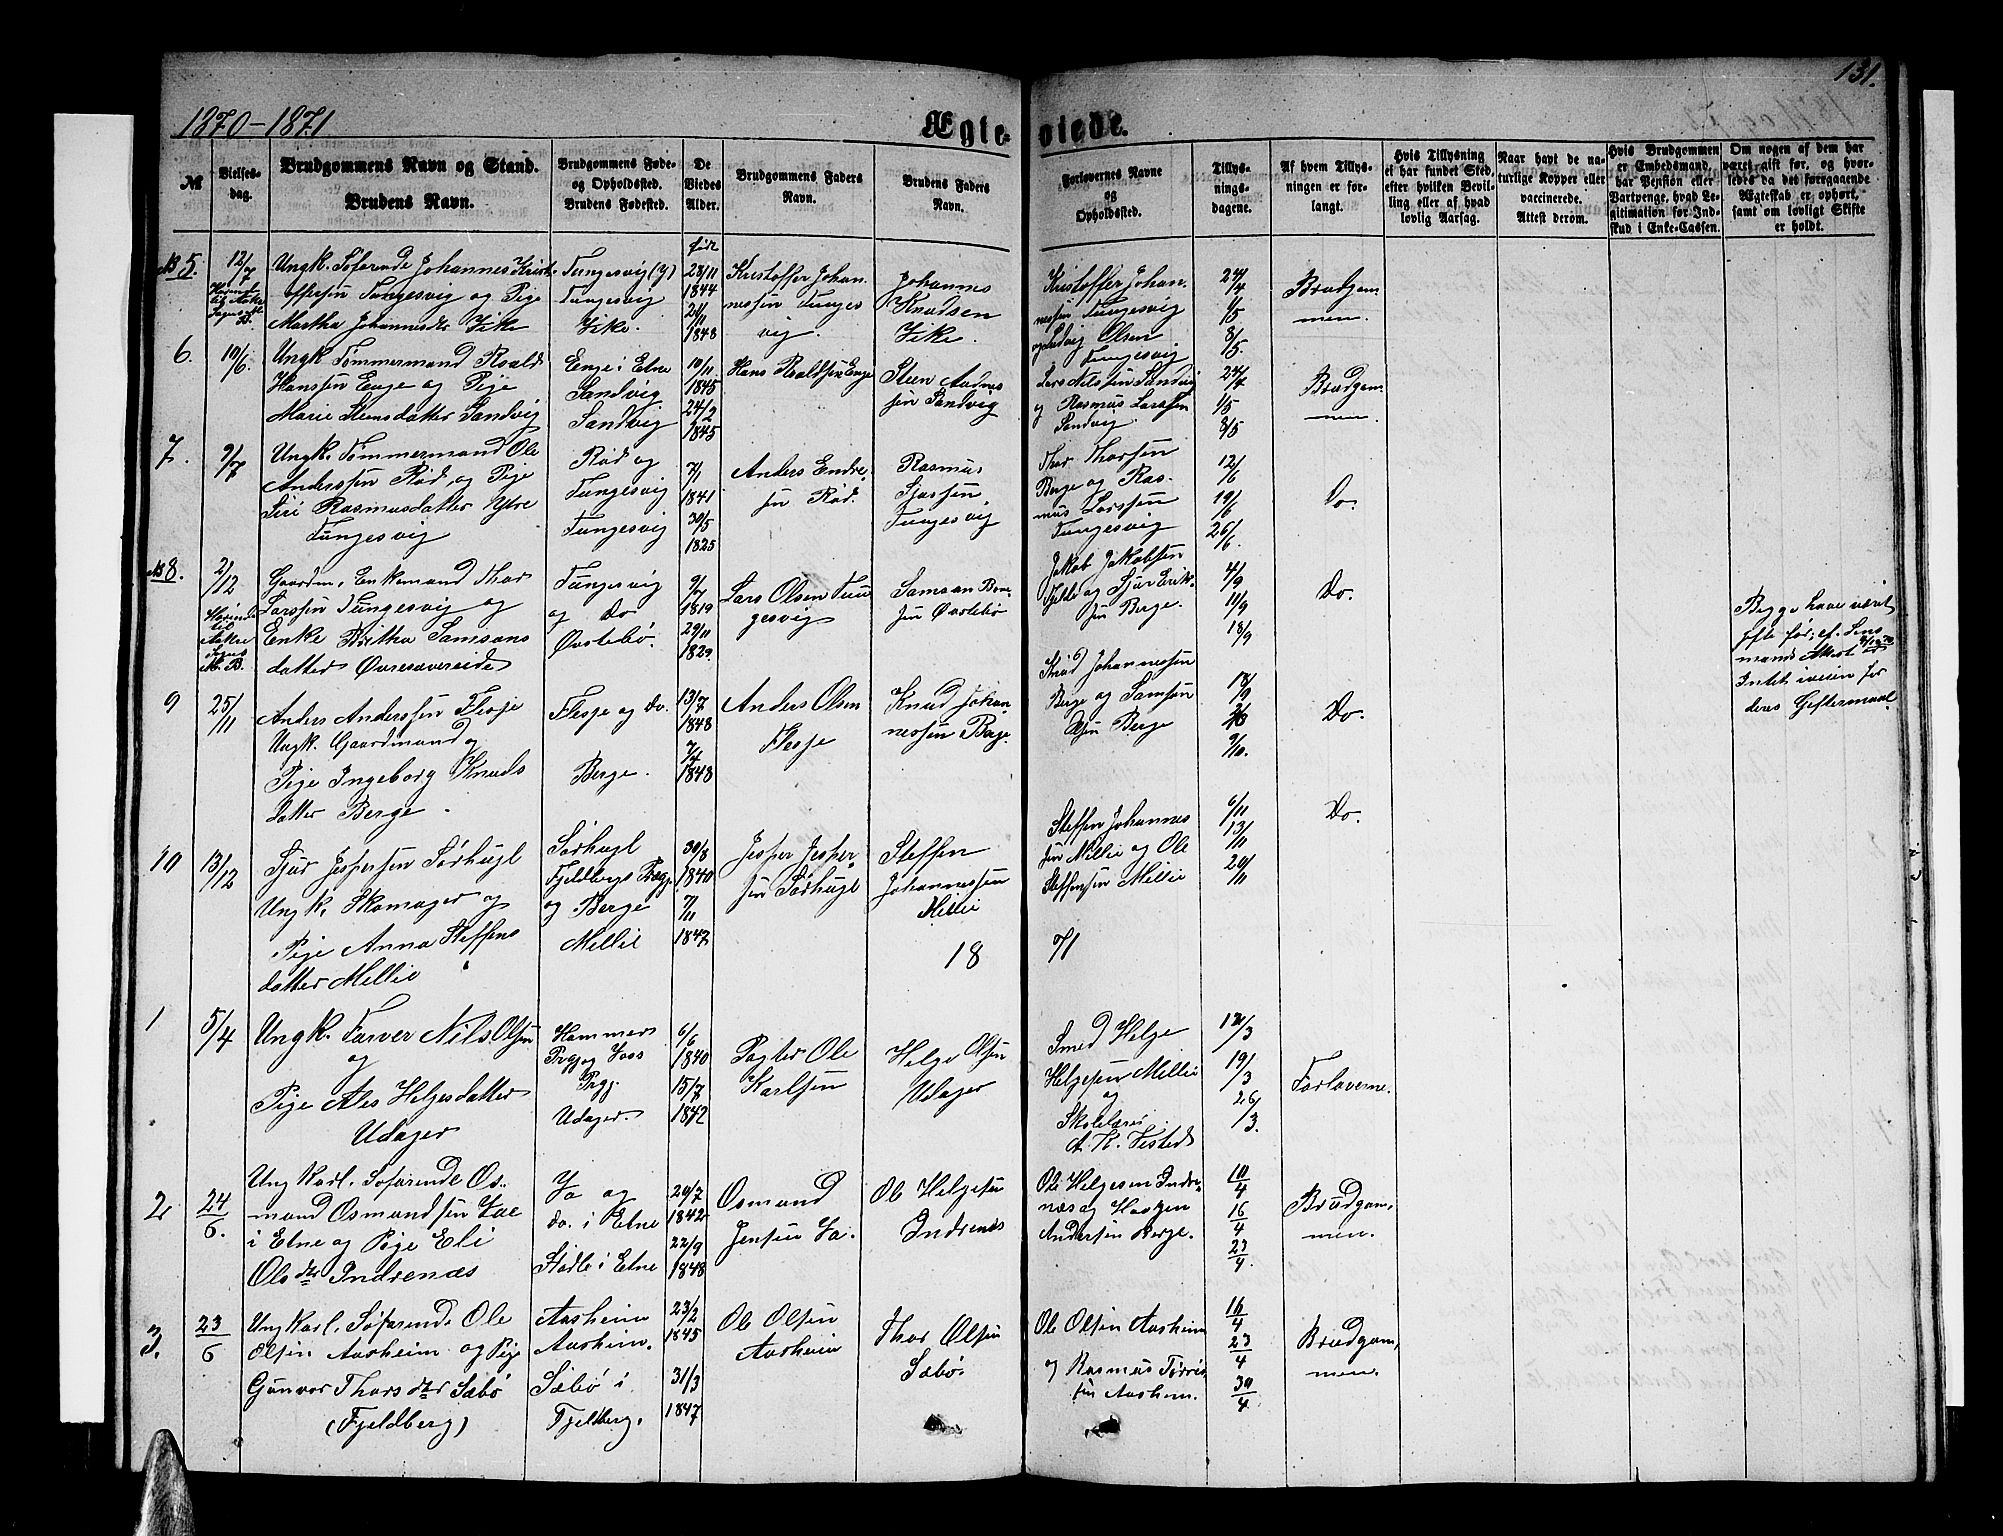 131.
1870-1871
Ægte-
viede.
№
Vielses-
dag.
Brudgommens Navn og Stand.
Brudens Navn.
Brudgommens Føde-
og Opholdssted.
Brudens Fødested.
De
Viedes
Alder.
Brudgommens Faders
Navn.
Brudens Faders
Navn.
Forlovernes Navne
og
Opholdssted.
Tillys-
nings-
dagene.
Af hvem Tillys-
ningen er for-
langt.
Hvis Tillysning
ei har fundet Sted,
efter hvilken Bevil-
ling eller af hvad
lovlig Aarsag.
Naar havt de na-
turlige Kopper eller
vaccinerede.
Attest derom.
Hvis Brudgommen
er Embedsmand,
har Pension eller
Vartpenge, hvad Le-
gitimation for Ind-
skud i Enke-Cassen.
Om nogen af dem har
været gift før, og hvor-
ledes da det foregaaende
Ægteskab er ophørt,
samt om lovligt Skifte
er holdt.
5.
12/7
Ungk. Søfarende Johannes Krist-
offersen Tungesvig og Pige
Martha Johannesdtr Vike
Tungesvig
Tungesvig
Vike.
født
23/11
1844
1848
Kristoffer Johan-
nessen Tunges
vig.
Johannes
Knudsen
Vike.
Kristoffer Johan-
nessen Tungesvig
og Ludvig Olsen
Tungesvig
24/4
1/5
8/5
Brudgom-
men.
6.
10/6.
Ungk. Tømmermand Roald
Hansen Enge og Pige
Marie Stensdatter Sandvig
Enge i Etne
Sandvig
Sandvig
10/11
1845
24/2
1845
Hans Roaldsen Enge
Steen Aadnes
sen Sandvig
Lars Nilssen Sandvig
og Rasmus Larssen
Sandvig.
24/4
1/5
8/5
Brudgom-
men
7.
9/7
Ungk. Tømmermand Ole
Anderssen Rød, og Pige
Siri Rasmusdatter Ytre
Tungesvig
Rød og
Tungesvig
Tungesvig
7/1
1841
30/5
1825
Anders Endre-
sen Rød.
Rasmus
Sjursen
Tungesvig
Thor Thorsen
Berge og Ras-
mus Larssen
Tungesvig
12/6
19/6
26/6.
Do.
8.
2/12
Gaardm. Enkemand Thor
Larssen Tungesvig og
Enke Britha Samsons
datter Øvresævereide
Tungesvig
og Do
Øvstebø.
9/7
1819
29/11
1829
Lars Olsen Tun
gesvig
Samson
sen Øvstebø
Jakob Jakobsen
og Sjur Erik-
sen Berge.
4/9
11/9
18/9
Do.
Begge have været
gifte før; ef. Lens
mands Attest er
Intet iveien for
deres Giftermaal.
9
25/11
Anders Anderssen Flesje
Ungk. Gaardmand og
Pige Ingeborg Knuds
datter Berge.
Flesje og do.
Berge.
13/7
1848
7/4
1848
Anders Olsen
Flesje
Knud Johan-
nessen Berge.
Knud Johannessen
Berge og Samson
Berge
18/9
9/10.
Do.
10
13/12
Sjur Jespersen Sørhugl
Ungk. Skomager og
Pige Anna Steffens
datter Millie
Sørhugl
Fjeldbergs Præg.
og Berge
Millie
30/8
1840
7/11
1847
Jesper Jesper-
sen Sørhugl
Steffen
Johannessen
Millie
Steffen Johannes
sen Millie og Ole
Steffensen Millie
6/11
13/11
20/11
Do.
18 71
1
5/4
Ungk. Farver Nils Olsen
og
Pige Ales Helgesdatter
Udager
Hammers
Prgj og Voss
Prgj.
Udager.
6/6
1840
15/7
1842
Pagter Ole
Karlsen
Helge Olsen
Udager
Smed Helge
Helgesen Millie
og
Skolelærer
A. K. Vested
12/3
19/3
26/3.
Forloverne.
2
24/6.
Ungkarl. Søfarende Os-
mand Osmandsen Vae
i Etne og Pige Eli
Ols dtr Indrenæs
Va og
do. i Etne
Stødle i Etne
20/7
1842
22/9
1848
Osmand
Jensen Va.
Ole Helgesen
Indrenes
Ole Helgesen Indre-
næs og Haagen
Andersen Berge.
10/4
16/4
23/4.
Brudgom-
men.
3.
23/6
Ungkarl. Søfarende Ole
Olsen Aasheim og Pige
Gunvor Thors dtr Sæbø
(Fjeldberg)
Aasheim
Aasheim.
Sæbø i
Fjelberg.
23/2
1845
31/3
1847
Ole Olsen
Aasheim
Thor Olsen
Sæbø.
Ole Olsen Aasheim
og Rasmus Tørris
sen Aasheim.
16/4
23/4
30/4
Brudgom-
men.